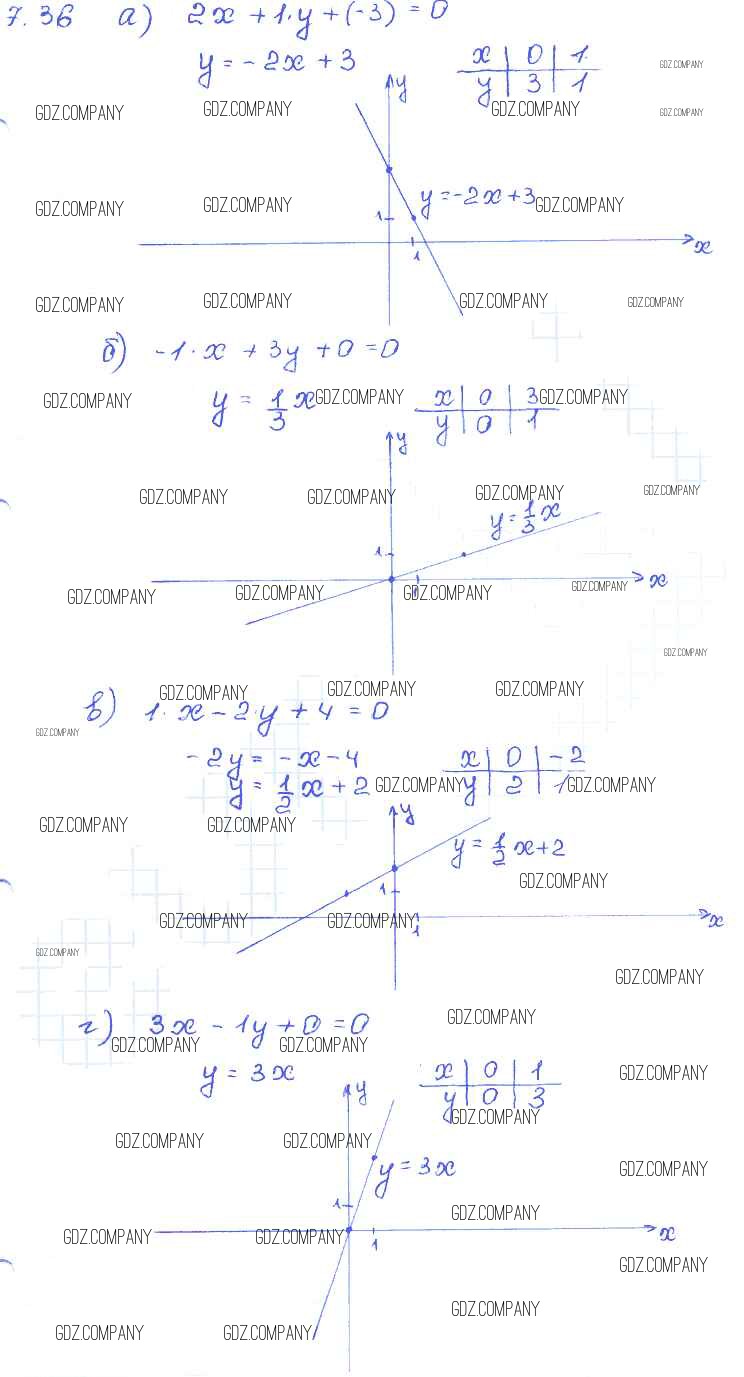 7.36 а) 2x + 1·y + (-3) = 0
y = -2x + 3
x | 0 | 1
y | 3 | 1
GDZ.COMPANY
GDZ.COMPANY GDZ.COMPANY GDZ.COMPANY GDZ.COMPANY
y
y = -2x + 3 GDZ.COMPANY
GDZ.COMPANY GDZ.COMPANY
1
1
x
GDZ.COMPANY GDZ.COMPANY GDZ.COMPANY GDZ.COMPANY
б) -1·x + 3y + 0 = 0
GDZ.COMPANY y = 1/3 x GDZ.COMPANY
x | 0 | 3 GDZ.COMPANY
y | 0 | 1
y
GDZ.COMPANY GDZ.COMPANY GDZ.COMPANY GDZ.COMPANY
y = 1/3 x
1
x
GDZ.COMPANY GDZ.COMPANY GDZ.COMPANY GDZ.COMPANY
GDZ.COMPANY
GDZ.COMPANY GDZ.COMPANY GDZ.COMPANY
в) 1·x - 2·y + 4 = 0
GDZ.COMPANY
-2y = -x - 4
x | 0 | -2
y = 1/2 x + 2 GDZ.COMPANY
y | 2 | 1 GDZ.COMPANY
y
GDZ.COMPANY GDZ.COMPANY
y = 1/2 x + 2
GDZ.COMPANY
1
GDZ.COMPANY GDZ.COMPANY 1 x
GDZ.COMPANY
GDZ.COMPANY
г) 3x - 1y + 0 = 0 GDZ.COMPANY
GDZ.COMPANY GDZ.COMPANY
y = 3x
x | 0 | 1 GDZ.COMPANY
y | 0 | 3
y
GDZ.COMPANY
GDZ.COMPANY GDZ.COMPANY
y = 3x GDZ.COMPANY
1
GDZ.COMPANY
GDZ.COMPANY GDZ.COMPANY 1 x
GDZ.COMPANY
GDZ.COMPANY
GDZ.COMPANY GDZ.COMPANY